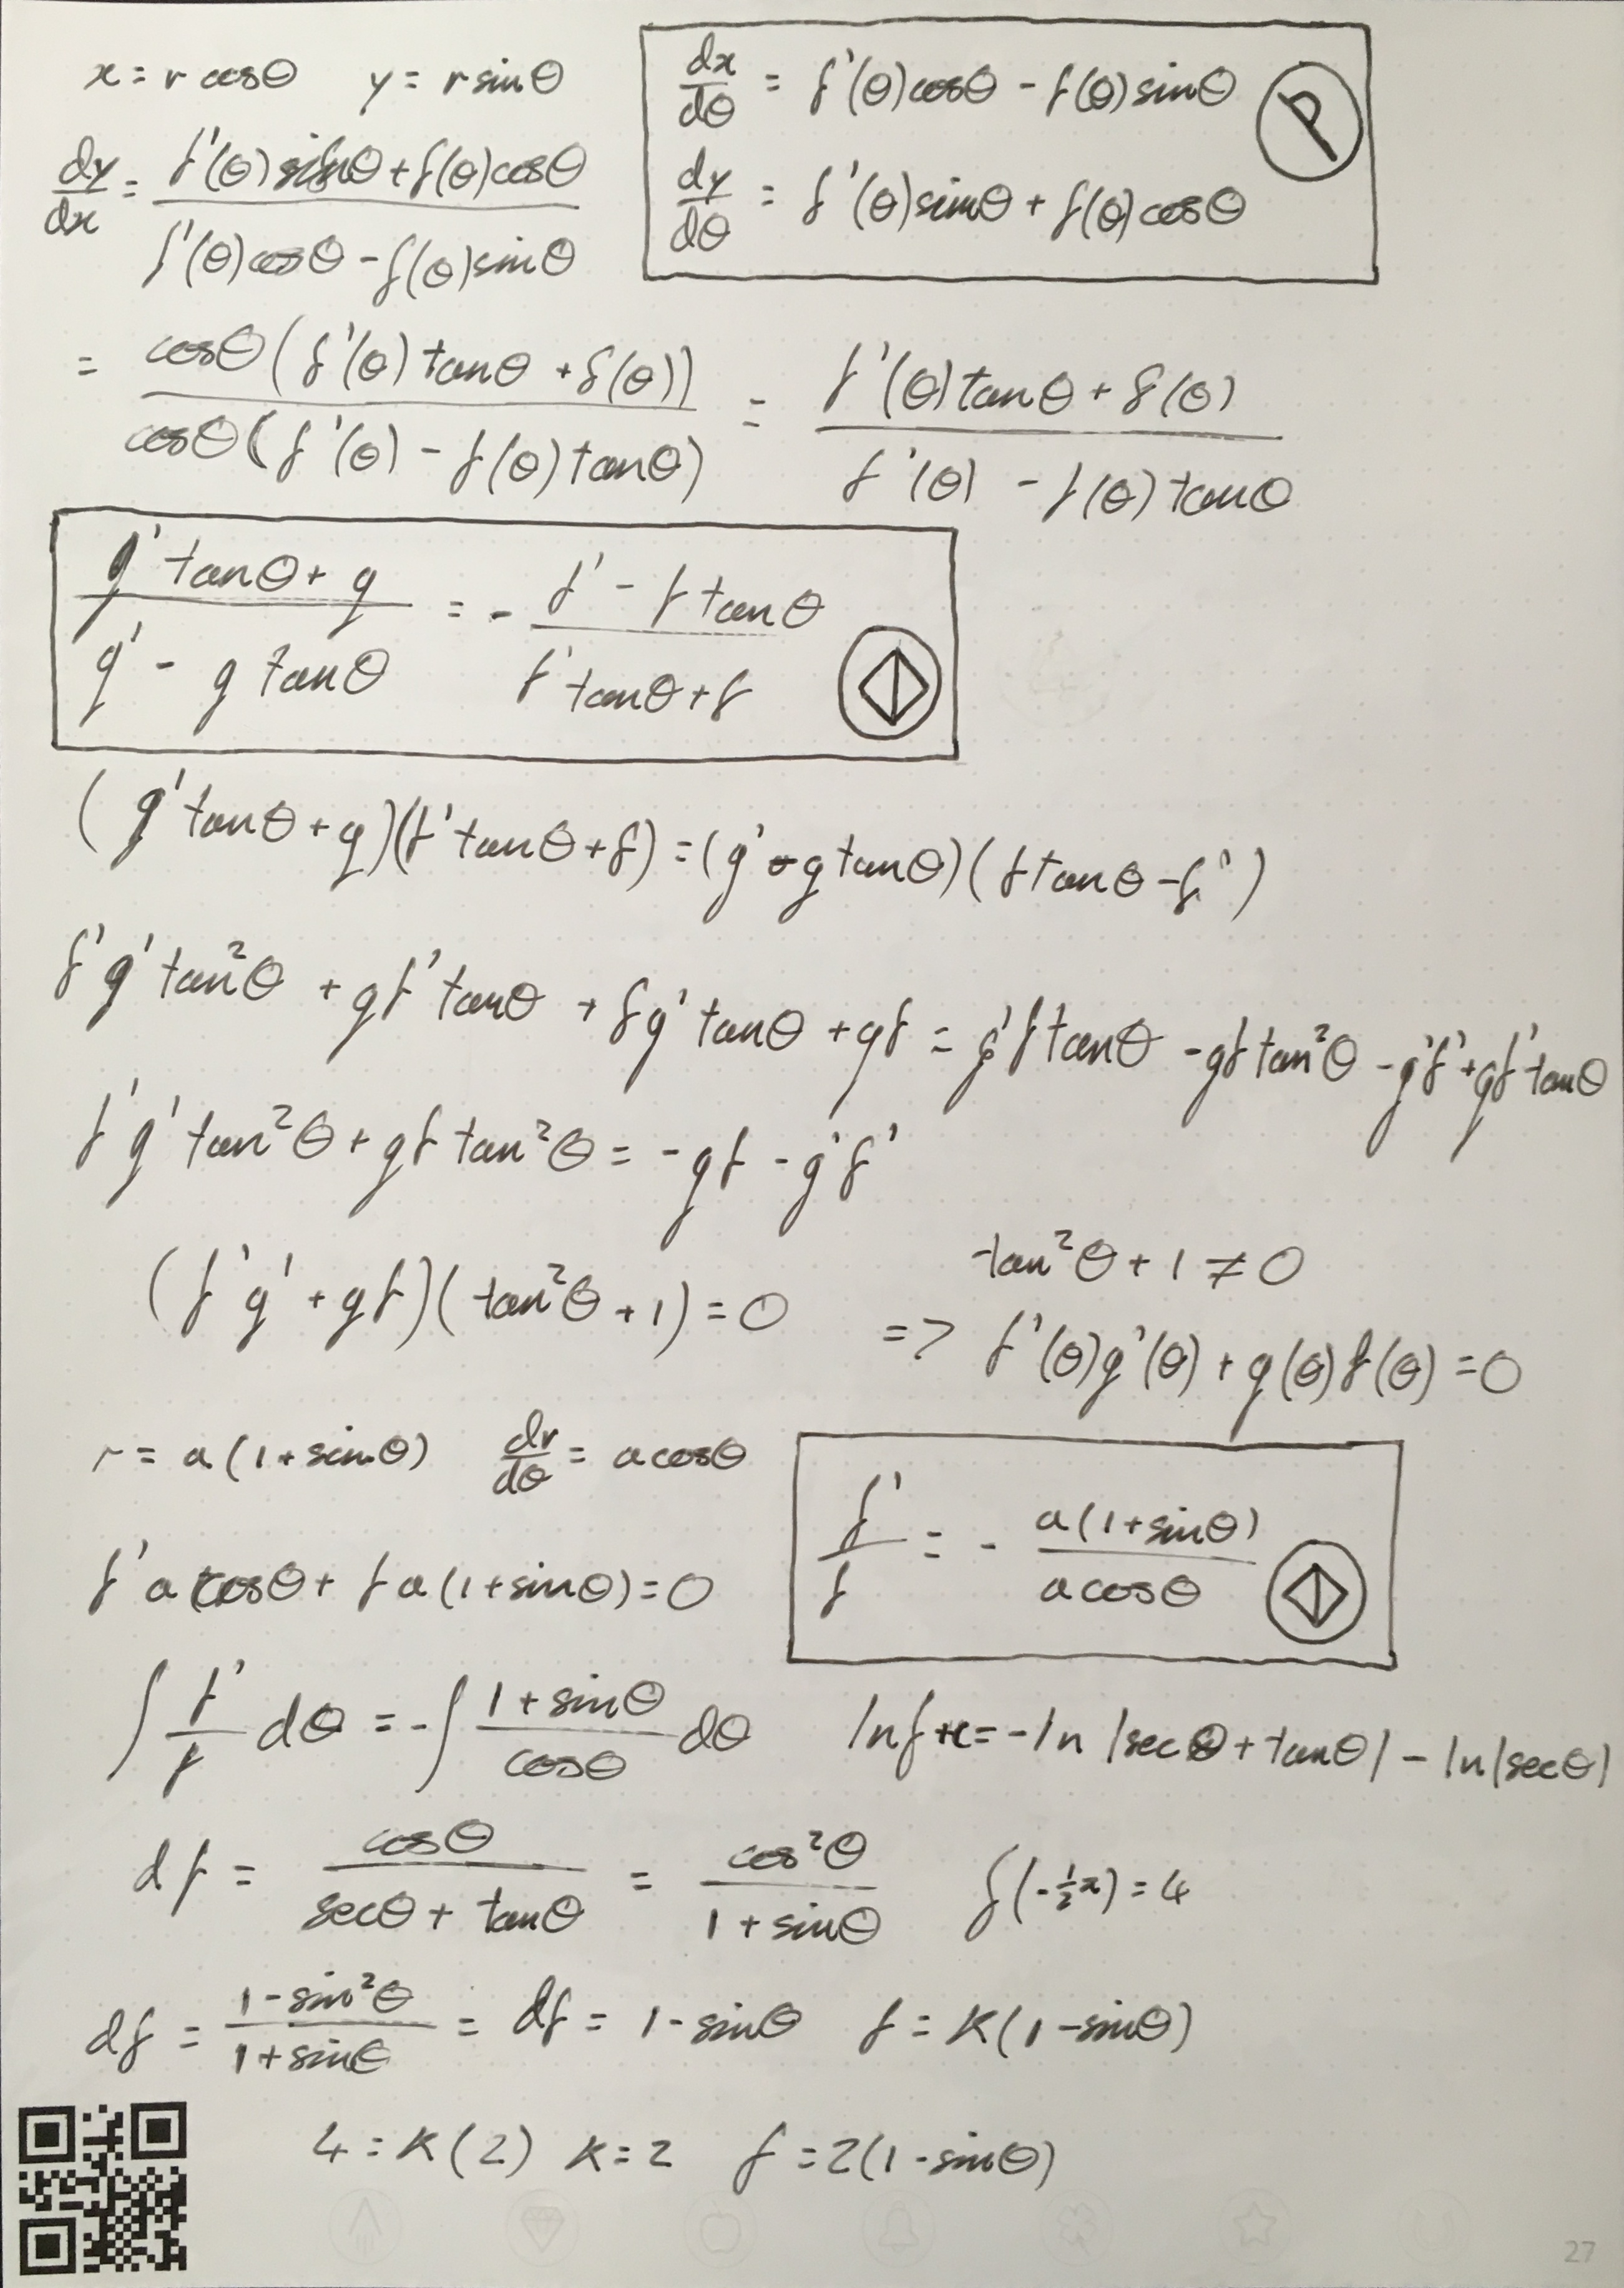 x = r cosθ    y = r sinθ
dx/dθ = f'(θ)cosθ - f(θ)sinθ
P
dy/dθ = f'(θ)sinθ + f(θ)cosθ
dy/dx = (f'(θ)sinθ + f(θ)cosθ)/(f'(θ)cosθ - f(θ)sinθ)
= cosθ(f'(θ)tanθ + f(θ))/cosθ(f'(θ) - f(θ)tanθ) = (f'(θ)tanθ + f(θ))/(f'(θ) - f(θ)tanθ)
(g'tanθ + g)/(g' - g tanθ) = - (f' - f tanθ)/(f'tanθ + f)
(g'tanθ + g)(f'tanθ + f) = (g' - g tanθ)(f tanθ - f')
f'g'tan²θ + gf'tanθ + fg'tanθ + gf = g'f tanθ - gf tan²θ - g'f' + gf'tanθ
f'g'tan²θ + gf tan²θ = -gf - g'f'
tan²θ + 1 ≠ 0
(f'g' + gf)(tan²θ + 1) = 0    => f'(θ)g'(θ) + g(θ)f(θ) = 0
r = a(1 + sinθ)    dr/dθ = a cosθ
f'/f = - a(1 + sinθ)/a cosθ
f' a cosθ + f a(1 + sinθ) = 0
∫ f'/f dθ = -∫ (1 + sinθ)/cosθ dθ    ln f + c = -ln|secθ + tanθ| - ln|secθ|
df = cosθ/(secθ + tanθ) = cos²θ/(1 + sinθ)    f(-½π) = 4
df = (1 - sin²θ)/(1 + sinθ) = df = 1 - sinθ    f = K(1 - sinθ)
4 = K(2)    K = 2    f = 2(1 - sinθ)
27